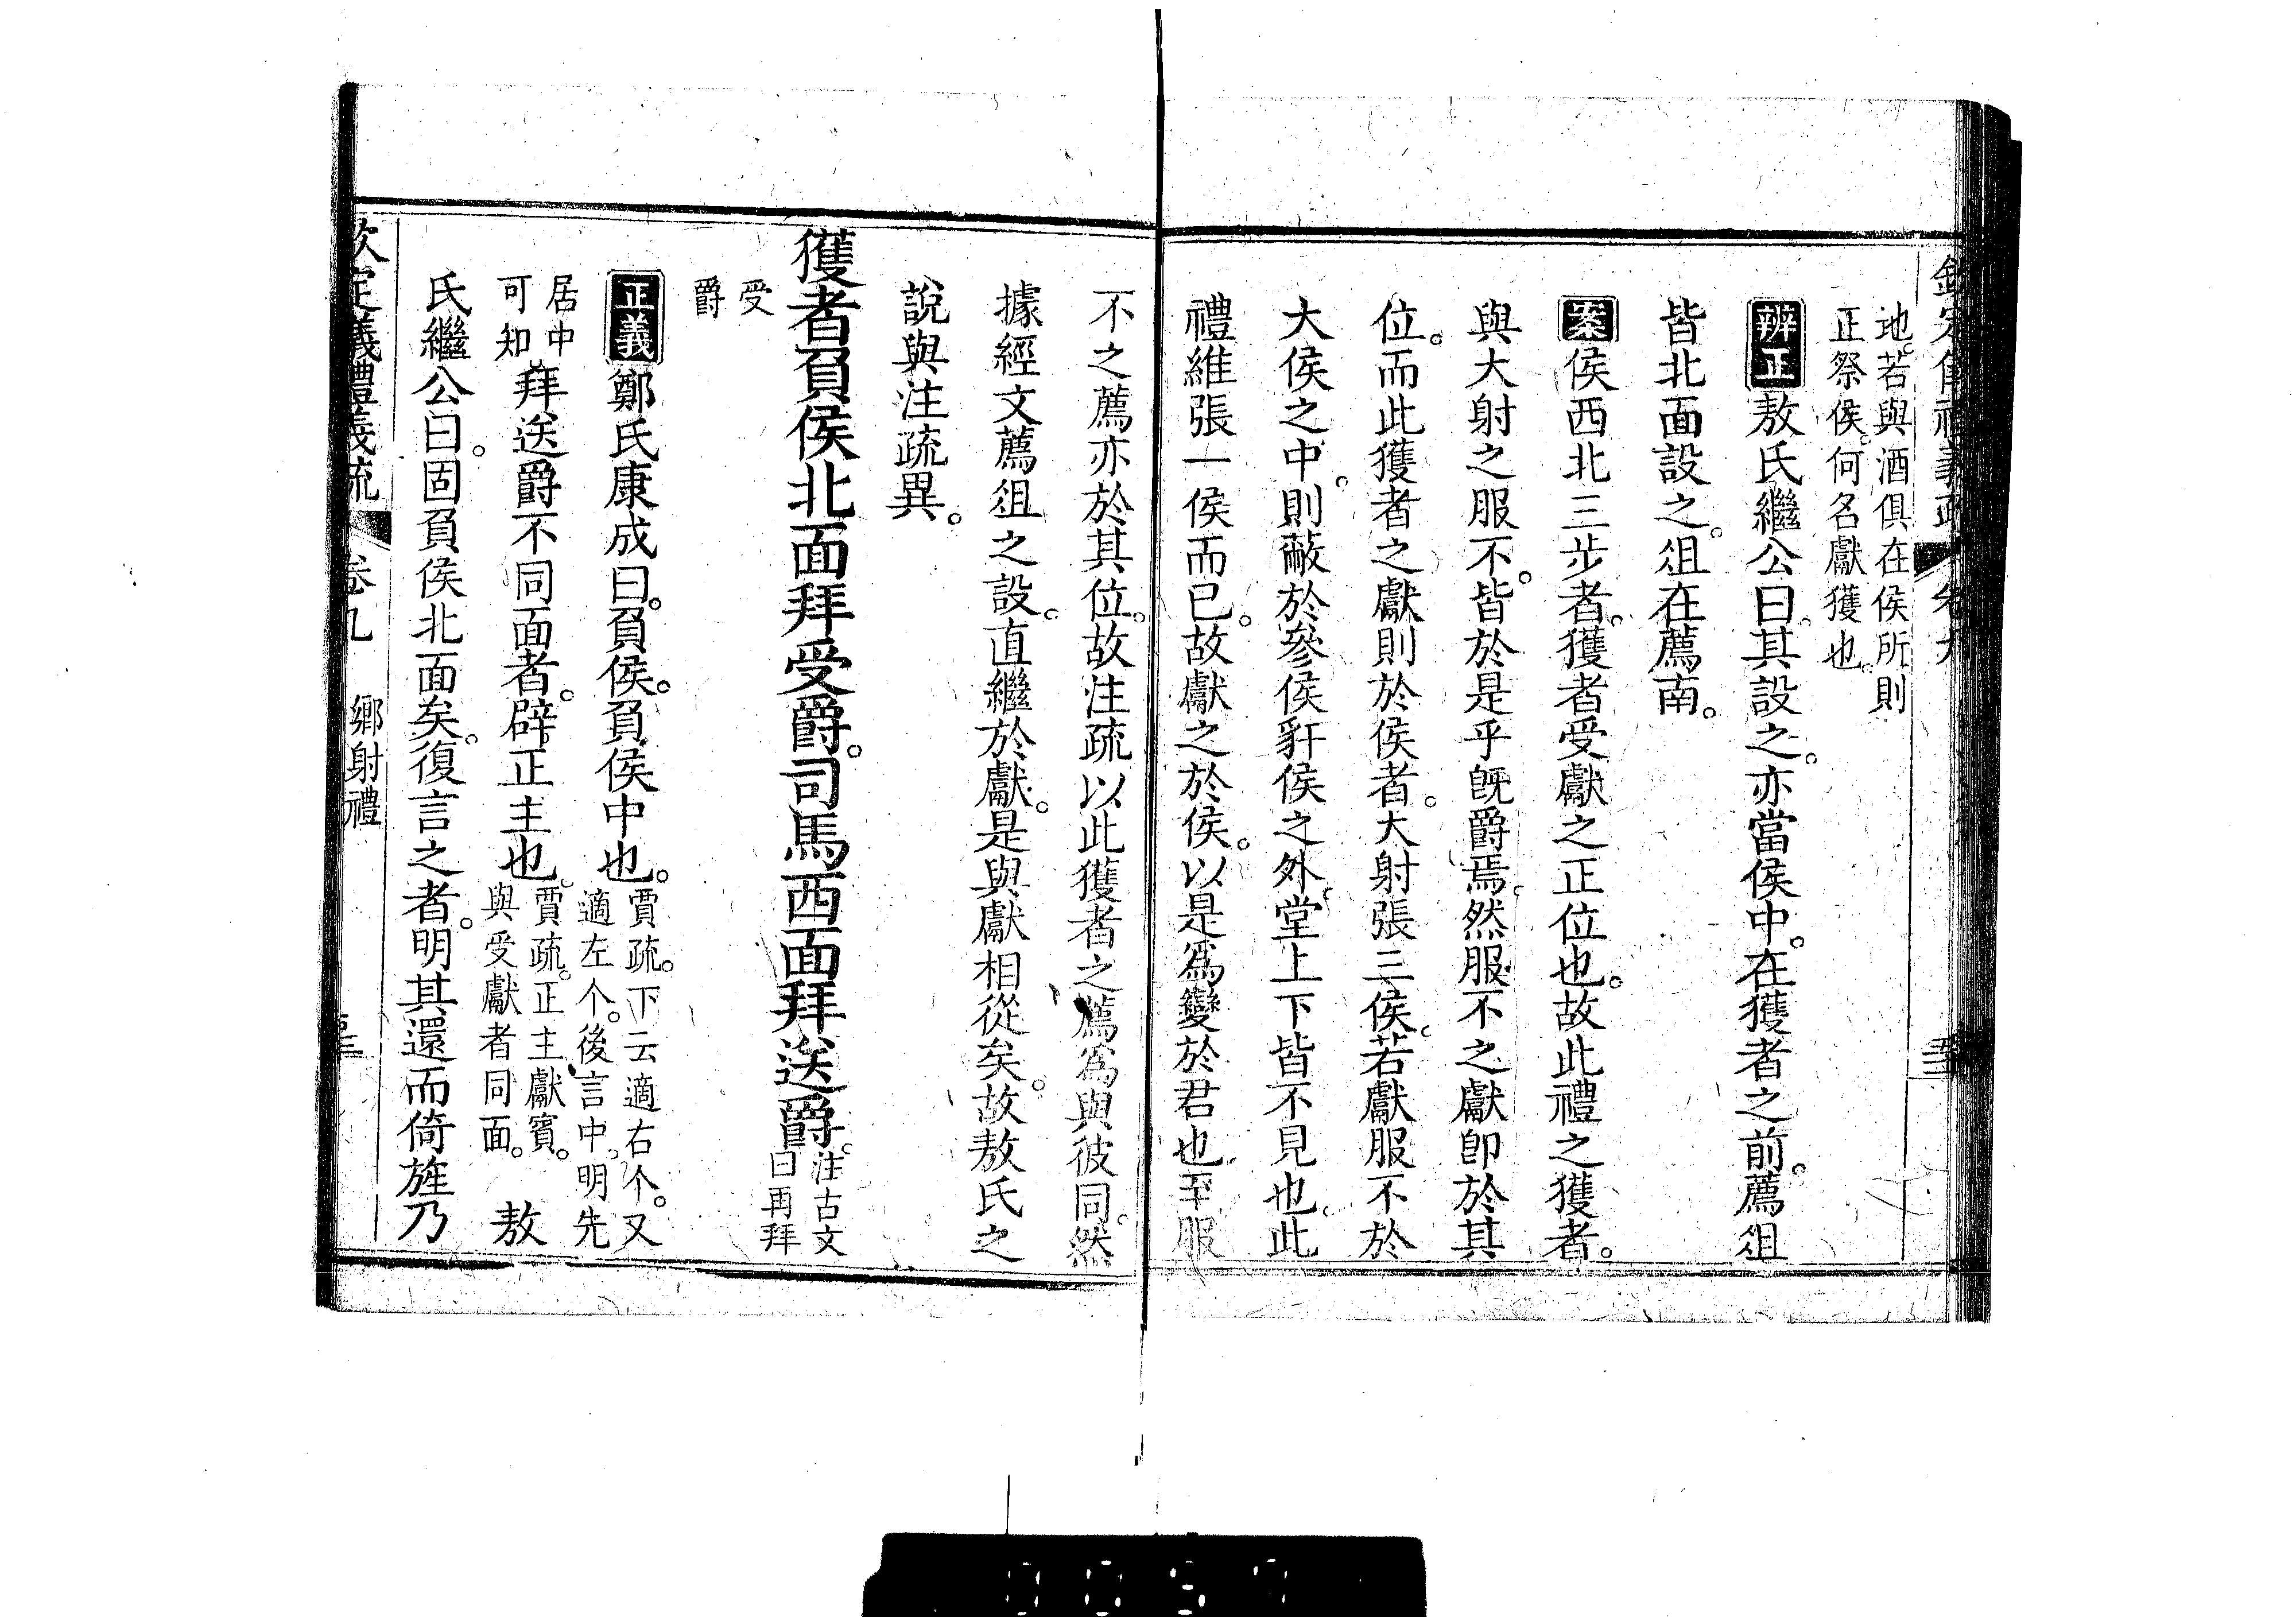 欽定儀禮義疏 卷九
地。若與酒俱在侯所則
正祭侯。何名獻獲也。
辨正 敖氏繼公曰。其設之。亦當侯中。在獲者之前。薦俎
皆北面設之。俎在薦南。
案 侯西北三步者。獲者受獻之正位也。故此禮之獲者。
與大射之服不。皆於是乎旣爵焉。然服不之獻卽於其
位。而此獲者之獻則於侯者。大射張三侯。若獻服不於
大侯之中。則蔽於參侯豻侯之外。堂上下皆不見也。此
禮維張一侯而已。故獻之於侯。以是爲變於君也。至服
不之薦亦於其位。故注疏以此獲者之薦爲與彼同。然
據經文薦俎之設。直繼於獻。是與獻相從矣。故敖氏之
說與注疏異。
獲者負侯北面拜受爵。司馬西面拜送爵。注古文
曰再拜
受
爵
正義 鄭氏康成曰。負侯。負侯中也。賈疏。下云適右个。又
適左个。後言中。明先
居中
可知。拜送爵不同面者。辟正主也。賈疏。正主獻賓。
與受獻者同面。 敖
氏繼公曰。固負侯北面矣。復言之者。明其還而倚旌乃
欽定儀禮義疏 卷九 鄉射禮